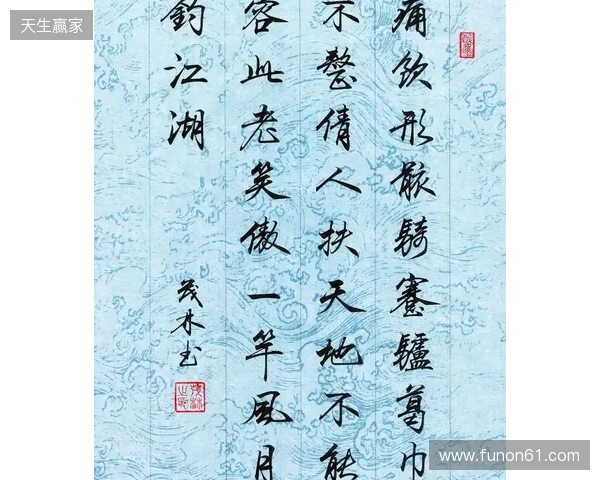 天生赢家
痛飲形骸騎蹇驢葛巾
不整倩人扶天地不能
容此老笑傲一竿風月
釣江湖
茂林書
www.funon61.com